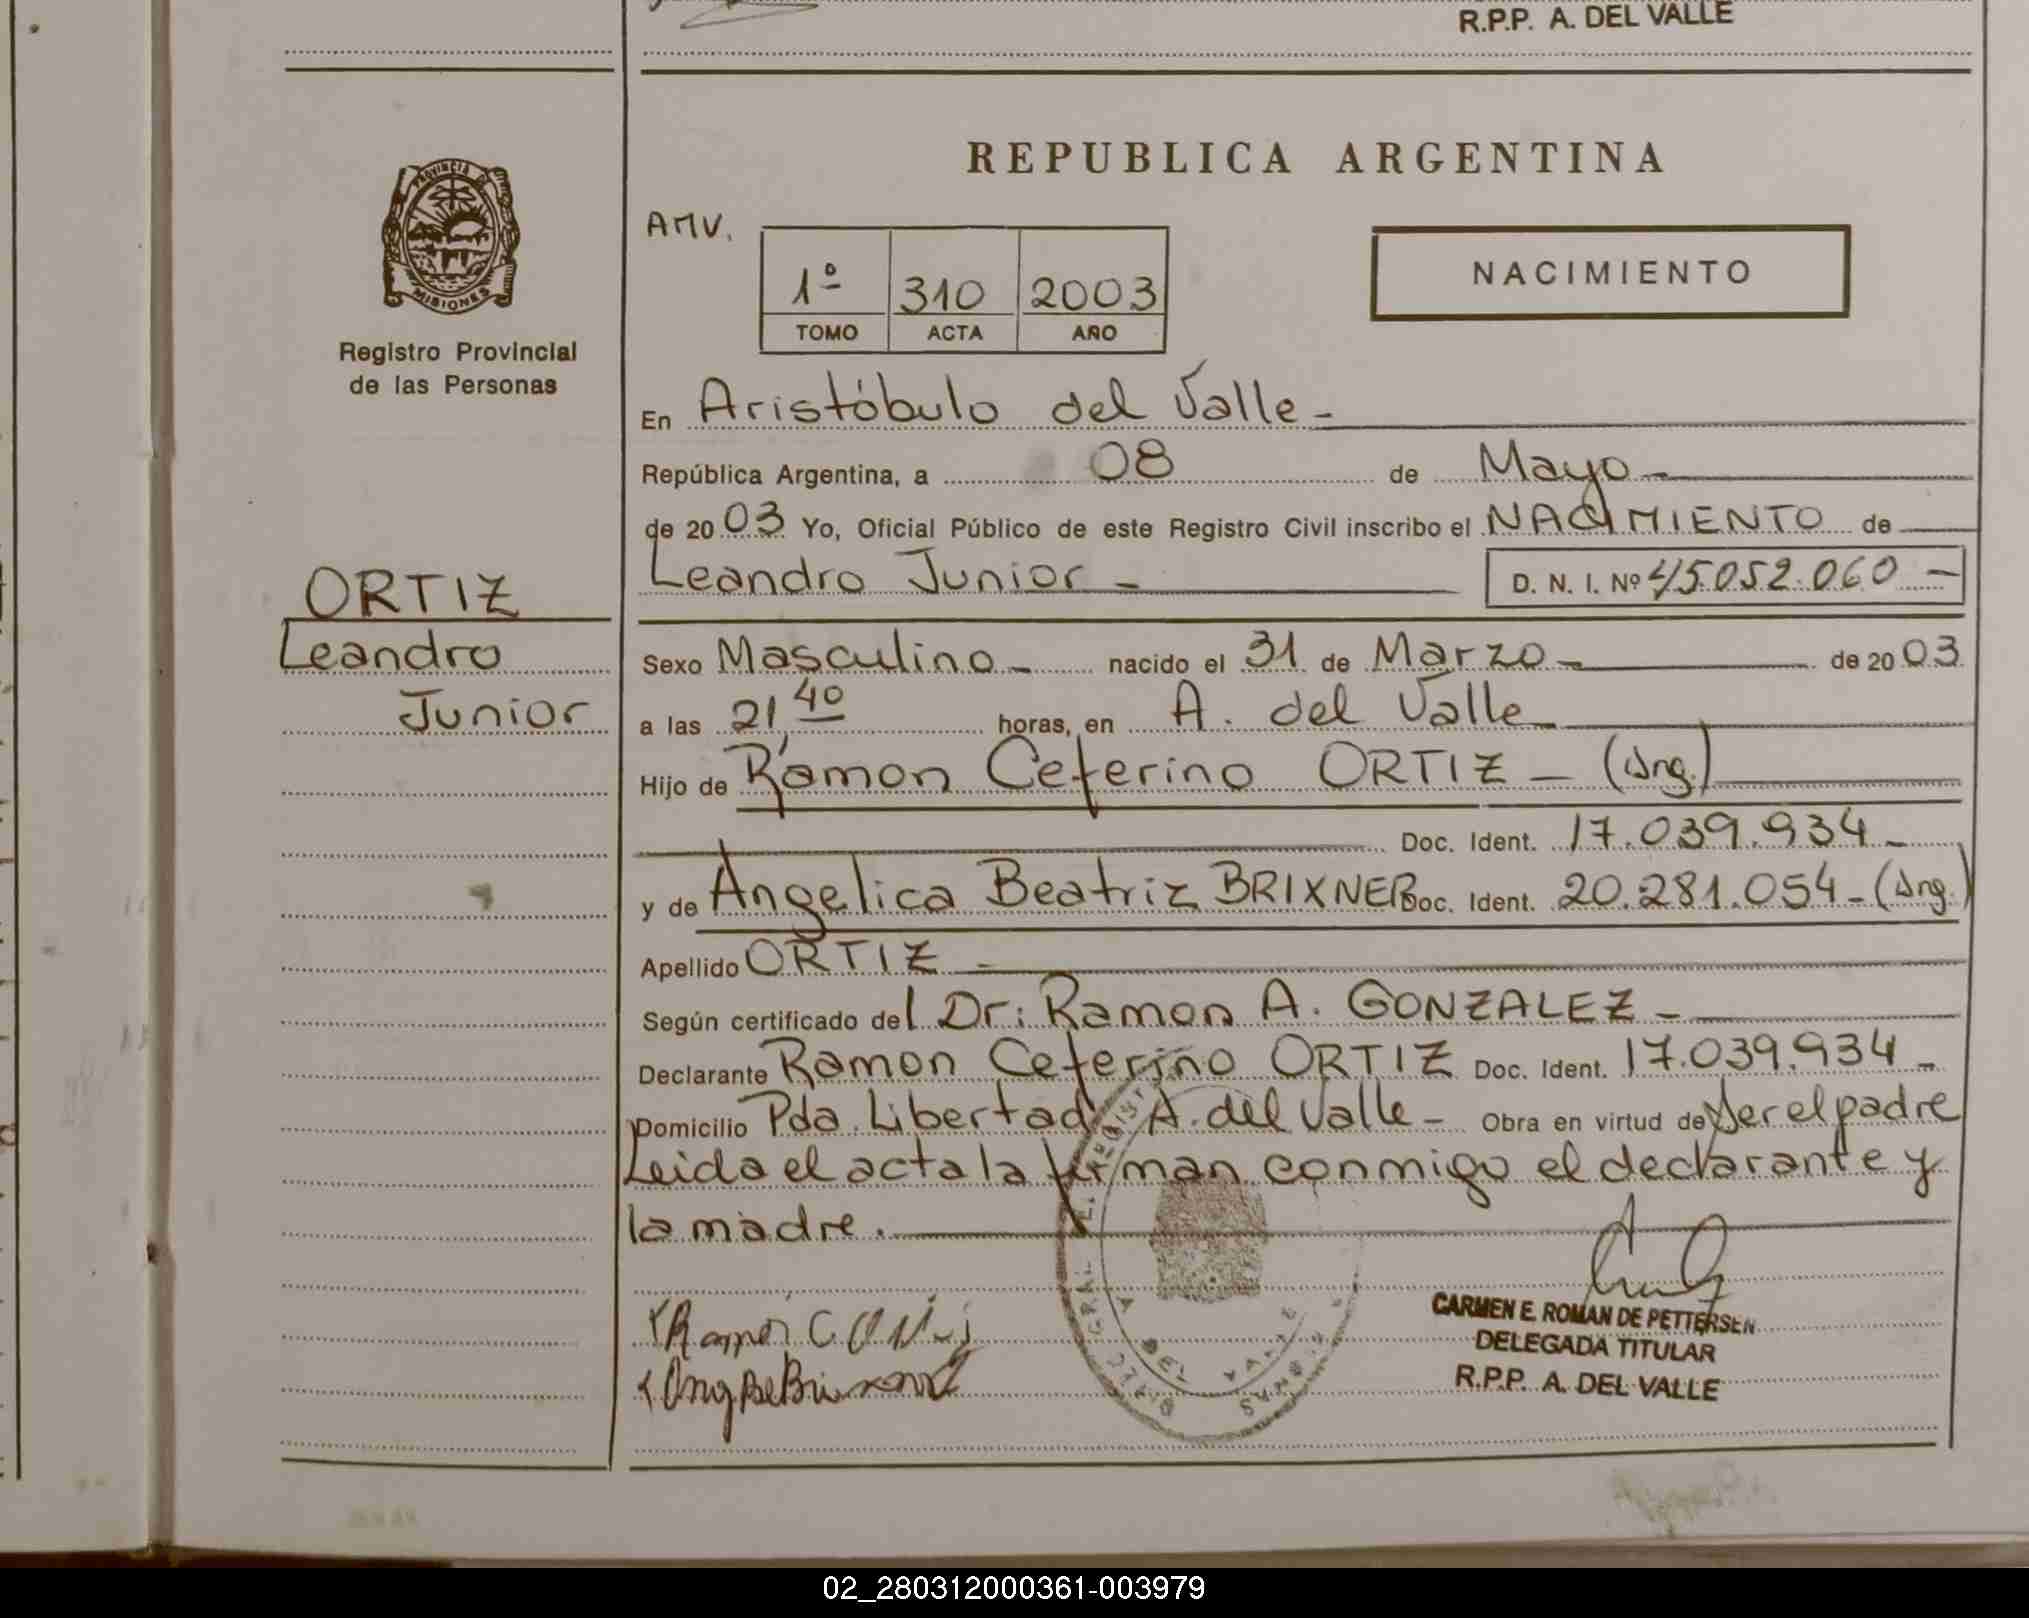 R.P.P. A. DEL VALLE
PROVINCIA DE
MISIONES
Registro Provincial
de las Personas
ORTIZ
Leandro
Junior
REPUBLICA ARGENTINA
AMV.
1º 310 2003
TOMO ACTA AÑO
NACIMIENTO
En Aristóbulo del Valle -
República Argentina, a 08 de Mayo
de 2003 Yo, Oficial Público de este Registro Civil inscribo el NACIMIENTO de
Leandro Junior - D. N. I. Nº 45.052.060 -
Sexo Masculino - nacido el 31 de Marzo - de 2003
a las 21 40 horas, en A. del Valle
Hijo de Ramón Ceferino ORTIZ - (Arg.)
Doc. Ident. 17.039.934 -
y de Angelica Beatriz BRIXNER Doc. Ident. 20.281.054 - (Arg.)
Apellido ORTIZ -
Según certificado del Dr: Ramon A. GONZALEZ -
Declarante Ramon Ceferino ORTIZ Doc. Ident. 17.039.934 -
Domicilio Pda. Libertad A. del Valle - Obra en virtud de ser el padre
Leida el acta la firman conmigo el declarante y
la madre.
CARMEN E. ROMAN DE PETTERSEN
DELEGADA TITULAR
R.P.P. A. DEL VALLE
Ramon C
A DEL VALLE
02_280312000361-003979